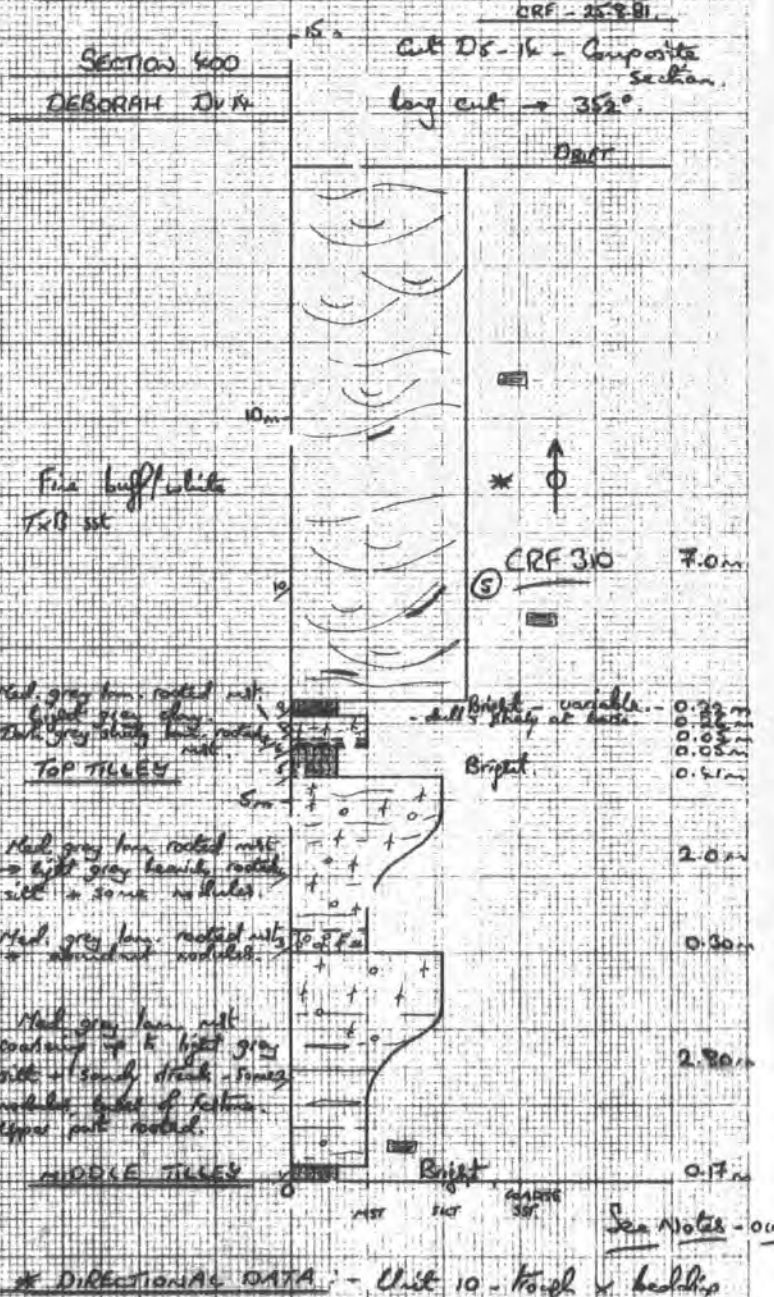 CRF - 25.8.81.
15
SECTION 400
DEBORAH
Cut - Composite
section.
long cut → 352°.
DRIFT
10m
Fine buff/white
TxB sst
7.0m
CRF 310
5
10
Med. grey lam. rooted mst.
Light grey clay.
Dark grey shaly lam. rooted
mst.
TOP TILLEY
Bright - variable -
- dull & shaly at base.
0.22m
0.05m
Bright.
0.41m
5m
Med grey lam rooted mst
→ light grey heavily rooted
silt + some nodules.
2.0m
Med. grey lam. rooted mst
+ abundant nodules.
0.30m
Med grey lam. mst
coarsening up to light grey
silt + sandy streak - some
nodules,
upper part rooted.
2.80m
MIDDLE TILLEY
Bright
0.17m
0
MST SILT COARSE
SST
See Notes -
* DIRECTIONAL DATA :- Unit 10 - trough x bedding